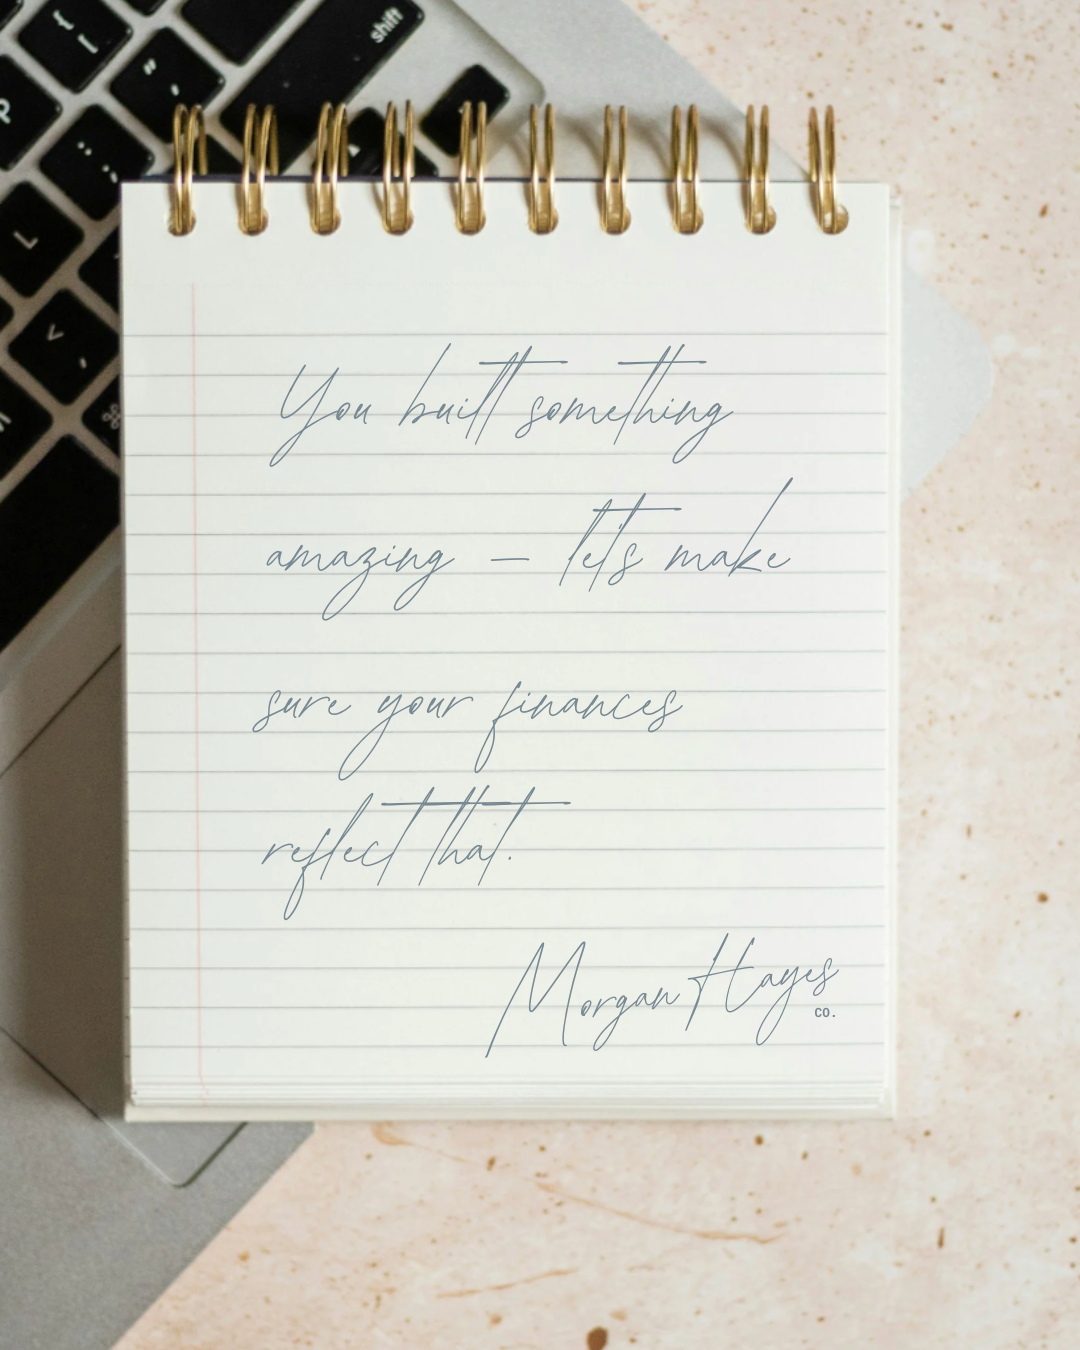 shift
{
[
"
'
P
:
;
L
<
,
M
⌘
You built something
amazing — let's make
sure your finances
reflect that.
Morgan Hayes
CO.